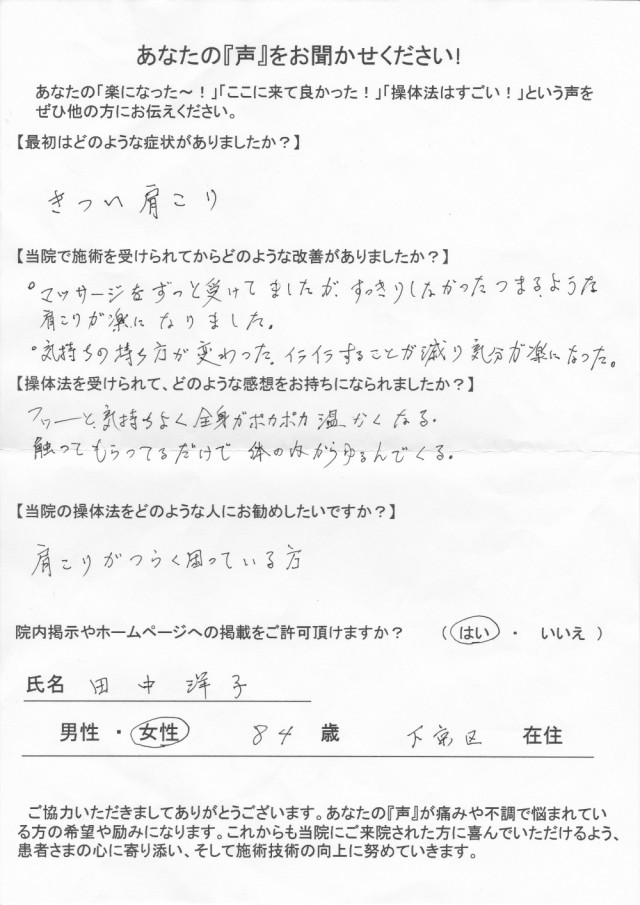 あなたの『声』をお聞かせください!
あなたの「楽になった～！」「ここに来て良かった！」「操体法はすごい！」という声を
ぜひ他の方にお伝えください。
【最初はどのような症状がありましたか？】
きつい肩こり
【当院で施術を受けられてからどのような改善がありましたか？】
°マッサージをずっと受けてましたが、すっきりしなかったつまるような
肩こりが楽になりました。
°気持ちの持ち方が変わった。イライラすることが減り気分が楽になった。
【操体法を受けられて、どのような感想をお持ちになられましたか？】
フワーと、気持ちよく全身がポカポカ温かくなる。
触ってもらってるだけで体の内からゆるんでくる。
【当院の操体法をどのような人にお勧めしたいですか？】
肩こりがつらく困っている方
院内掲示やホームページへの掲載をご許可頂けますか？ （ はい ・ いいえ ）
氏名 田中洋子
男性 ・ 女性 84 歳 下京区 在住
ご協力いただきましてありがとうございます。あなたの『声』が痛みや不調で悩まれてい
る方の希望や励みになります。これからも当院にご来院された方に喜んでいただけるよう、
患者さまの心に寄り添い、そして施術技術の向上に努めていきます。